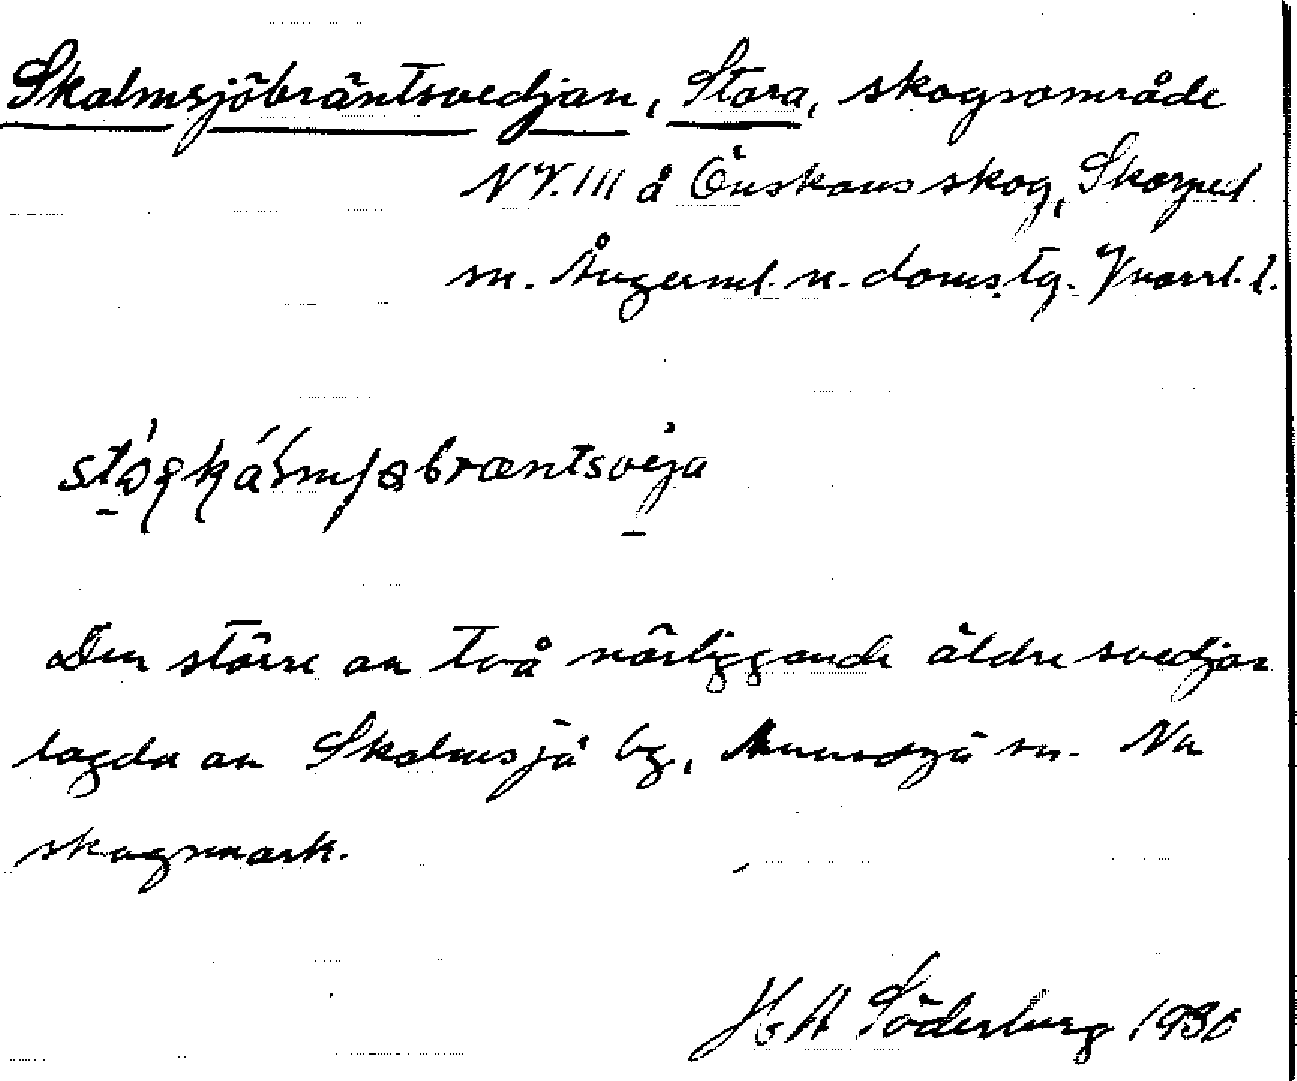 Skalmsjöbräntsvedjan, Stora, skogsområde
NV. III å Önskans skog, Skorped
sn. Ångerml. n. doms.tg. Vnorrl. l.
Den större av två närliggande äldre svedjor
lagda av Skalmsjö by, Anundsjö sn. Nu
skogsmark.
H A Söderberg 1930